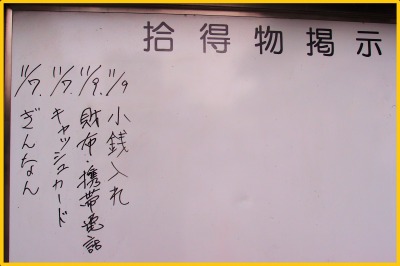 拾得物掲示
11/9 小銭入れ
11/9. 財布・携帯電話
11/7. キャッシュカード
11/7. ぎんなん